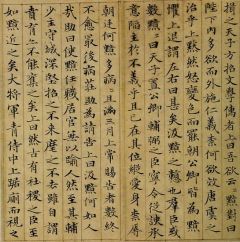 揖之天子方招文學儒者上曰吾欲云云黯對曰
陛下內多欲而外施仁義柰何欲效唐虞之
治乎上默然怒變色而罷朝公卿皆為黯
懼上退謂左右曰甚矣汲黯之戇也群臣或
數黯〻曰天子置公卿輔弼之臣寧令從諛承
意陷主於不義乎且已在其位縱愛身柰辱
朝廷何黯多病〻且滿三月上常賜告者數終
不愈最後病莊助為請告上曰汲黯何如人
哉助曰使黯任職居官無以踰人然至其輔
少主守城深堅招之不來麾之不去雖自謂
賁育亦不能奪之矣上曰然古有社稷之臣至
如黯近之矣大將軍青侍中上踞廁而視之